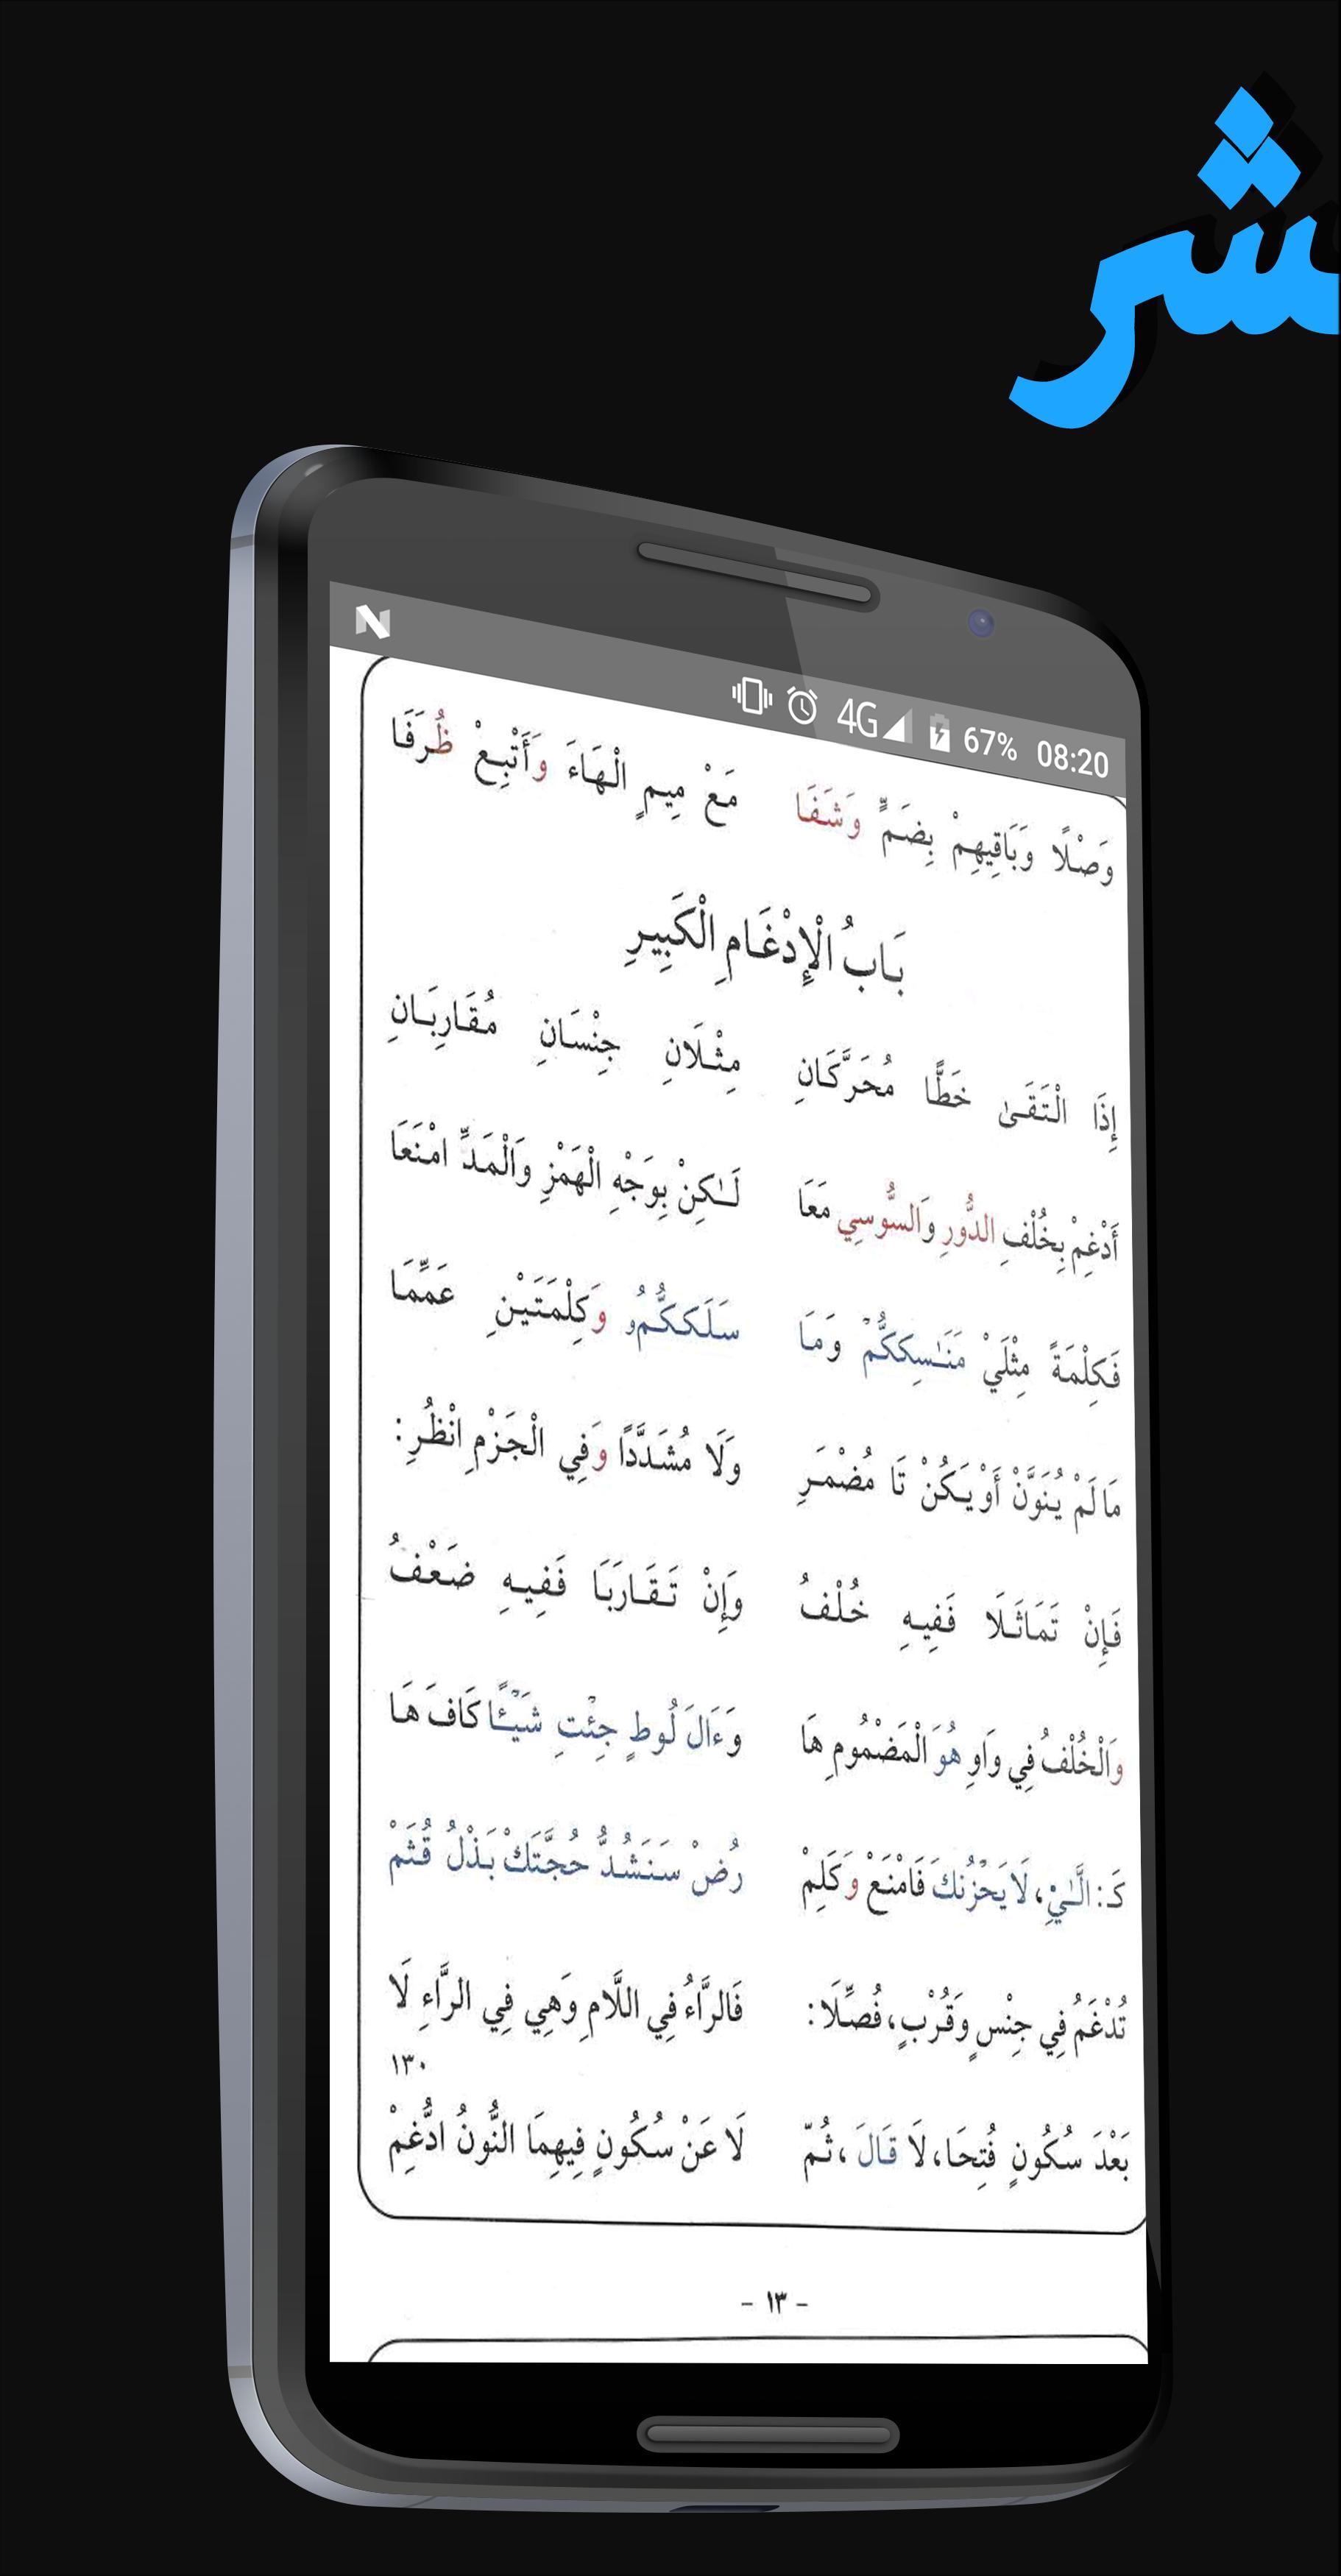 شر
4G 67% 08:20
وَصْلًا وَبَاقِيهِمْ بِضَمٍّ وَشَفَا مَعْ مِيمِ الْهَاءَ وَأَتْبِعْ ظُرَفَا
بَابُ الْإِدْغَامِ الْكَبِيرِ
إِذَا الْتَقَىٰ خَطًّا مُحَرَّكَانِ مِثْلَانِ جِنْسَانِ مُقَارِبَانِ
أَدْغِمْ بِخُلْفِ الدُّورِ وَالسُّوسِي مَعَا لَـٰكِنْ بِوَجْهِ الْهَمْزِ وَالْمَدِّ امْنَعَا
فَكِلْمَةً مِثْلَيْ مَنَـٰسِكَكُّمْ وَمَا سَلَككُّمُو وَكِلْمَتَيْنِ عَمِّمَا
مَا لَمْ يُنَوَّنْ أَوْ يَكُنْ تَا مُضْمَرِ وَلَا مُشَدَّدًا وَفِي الْجَزْمِ انْظُرِ:
فَإِنْ تَمَاثَلَا فَفِيهِ خُلْفُ وَإِنْ تَقَارَبَا فَفِيهِ ضَعْفُ
وَالْخُلْفُ فِي وَاوِ هُوَ الْمَضْمُومِ هَا وَءَالَ لُوطٍ جِئْتِ شَيْـًٔا كَافَ هَا
كَـ: الَّـٰيْ، لَا يَحْزُنكَ فَامْنَعْ وَكَلِمْ رُضْ سَنَشُدُّ حُجَّتَكْ بَذْلُ قُثَمْ
تُدْغَمُ فِي جِنْسٍ وَقُرْبٍ، فُصِّلَا: فَالرَّاءُ فِي اللَّامِ وَهِي فِي الرَّاءِ لَا
١٣٠
بَعْدَ سُكُونٍ فُتِحَا، لَا قَالَ، ثُمّ لَا عَنْ سُكُونٍ فِيهِمَا النُّونُ ادُّغِمْ
- ١٣ -